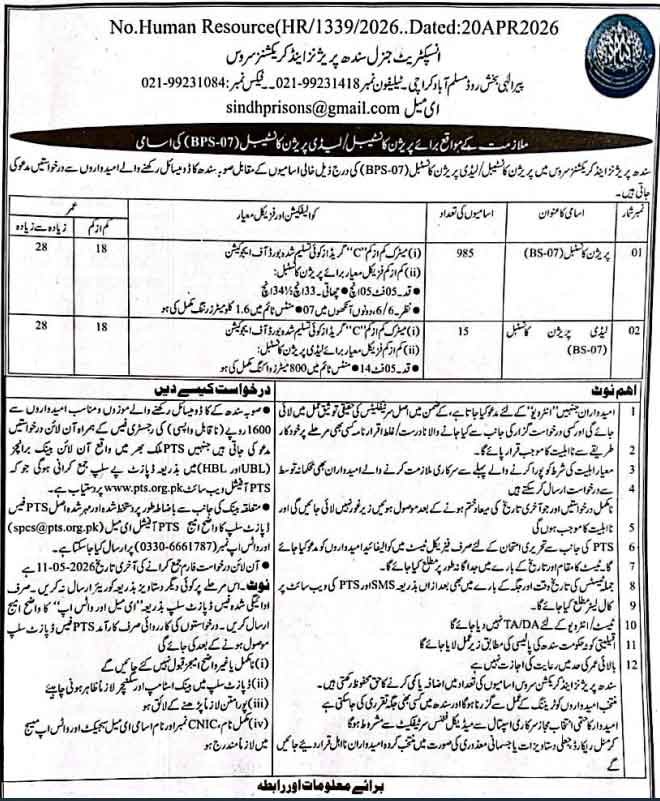 No.Human Resource(HR/1339/2026..Dated:20APR2026
انسپکٹریٹ جنرل سندھ پریژنز اینڈ کریکشنز سروس
پیر الٰہی بخش روڈ مسلم آباد کراچی۔ ٹیلیفون نمبر 99231418-021 ۔ فیکس نمبر: 99231084-021
ای میل sindhprisons@gmail.com
ملازمت کے مواقع برائے پریژن کانسٹیبل/ لیڈی پریژن کانسٹیبل (BPS-07) کی اسامی
سندھ پریژنز اینڈ کریکشنز سروس میں پریژن کانسٹیبل/ لیڈی پریژن کانسٹیبل (BPS-07) کی درج ذیل خالی اسامیوں کے مقابل صوبہ سندھ کا ڈومیسائل رکھنے والے امیدواروں سے درخواستیں مدعو کی
جاتی ہیں۔
نمبر شمار
اسامی کا عنوان
اسامیوں کی تعداد
کوالیفکیشن اور فزیکل معیار
عمر
کم از کم
زیادہ سے زیادہ
01
پریژن کانسٹیبل (BS-07)
985
(i) میٹرک کم از کم "C" گریڈ از کوئی تسلیم شدہ بورڈ آف ایجوکیشن
(ii) کم از کم فزیکل معیار برائے پریژن کانسٹیبل:
• قد۔05 فٹ 05 انچ • چھاتی۔ 33 انچ 34½ انچ
• نظر۔ 6/6، دونوں آنکھوں میں • 07 منٹس ٹائم میں 1.6 کلومیٹر رننگ مکمل کی ہو
18
28
02
لیڈی پریژن کانسٹیبل
(BS-07)
15
(i) میٹرک کم از کم "C" گریڈ از کوئی تسلیم شدہ بورڈ آف ایجوکیشن
(ii) کم از کم فزیکل معیار برائے لیڈی پریژن کانسٹیبل:
• قد۔05 فٹ • 14 منٹس ٹائم میں 800 میٹر واکنگ مکمل کی ہو
18
28
اہم نوٹ
1 امیدواران جنہیں "انٹرویو" کے لئے مدعو کیا جاتا ہے، کے ضمن میں اصل سرٹیفکیٹس کی حقیقی توثیق عمل میں لائی
جائے گی اور کسی درخواست گزار کی جانب سے کیا جانے والا نادرست/ غلط اقرار نامہ کسی بھی مرحلے پر خود کار
2 طریقے سے نااہلیت کا موجب قرار پائے گا۔
3 معیار اہلیت کی شرط کو پورا کرنے والے پہلے سے سرکاری ملازمت کرنے والے امیدواران بھی محکمانہ توسط
4 سے درخواست ارسال کر سکتے ہیں
نامکمل درخواستیں اور جو آخری تاریخ کی میعاد ختم ہونے کے بعد موصول ہوئیں زیر غور نہیں لائی جائیں گی اور
5 نااہلیت کا موجب ہوں گی
6 PTS کی جانب سے تحریری امتحان کے لئے صرف فزیکل ٹیسٹ میں کوالیفائیڈ امیدواروں کو مدعو کیا جائے
7 گا۔ ٹیسٹ کا مقام اور تاریخ کے بارے میں جداگانہ طور پر مطلع کیا جائے گا
8 جملہ ٹیسٹس کی تاریخ وقت اور جگہ کے بارے میں بھی بعد ازاں بذریعہ SMS اور PTS کی ویب سائٹ پر
9 کال لیٹر مطلع کیا جائے گا۔
10 ٹیسٹ/ انٹرویو کے لئے TA/DA نہیں دیا جائے گا
11 اقلیتی کوٹہ حکومت سندھ کی پالیسی کے مطابق زیر عمل لایا جائے گا
12 بالائی عمر کی حد میں رعایت کی اجازت نہیں ہے
سندھ پریژنز اینڈ کریکشن سروس اسامیوں کی تعداد میں اضافہ یا کمی کرنے کا حق محفوظ رکھتی ہیں۔
منتخب امیدواروں کو ٹریننگ کے عمل سے گزرنا ہوگا اور سندھ میں کسی بھی جگہ تقرری کی جا سکتی ہے
امیدوار کا حتمی انتخاب مجاز سرکاری اسپتال سے میڈیکل فٹنس سرٹیفکیٹ سے مشروط ہوگا
کرمنل ریکارڈ جعلی دستاویزات یا جسمانی معذوری کی صورت میں منتخب کردہ امیدواران نااہل قرار دیئے جائیں
گے
درخواست کیسے دیں
• صوبہ سندھ کے کا ڈومیسائل رکھنے والے موزوں و مناسب امیدواروں سے
1600 روپے (ناقابل واپسی) کی رجسٹری فیس کے ہمراہ آن لائن درخواستیں
مدعو کی جاتی ہیں جنہیں PTS ملک بھر میں واقع آن لائن برانچز
(UBL اور HBL) میں بذریعہ ڈپازٹ پے سلپ جمع کرانی ہوگی جو کہ
PTS آفیشل ویب سائٹ www.pts.org.pk پر دستیاب ہے۔
• متعلقہ بینک کی جانب سے باضابطہ طور پر دستخط شدہ اور مہر شدہ اصل PTS فیس
ڈپازٹ سلپ کا واضح امیج PTS آفیشل ای میل (spcs@pts.org.pk)
اور واٹس ایپ نمبر (0330-6661787) پر ارسال کیا جا سکتا ہے۔
• آن لائن درخواست فارم جمع کرانے کی آخری تاریخ 11-05-2026 ہے
نوٹ۔ اس مرحلے پر کوئی دیگر دستاویز بذریعہ کوریئر ارسال نہ کریں۔ صرف
ادائیگی شدہ فیس ڈپازٹ سلپ بذریعہ "ای میل اور واٹس اپ" کا واضح امیج
ارسال کریں۔ درخواستوں کی کارروائی صرف کارآمد PTS فیس ڈپازٹ سلپ
موصول ہونے کے بعد کی جائے گی
(i) نامکمل یا غیر واضح امیجز قبول نہیں کئے جائیں گے
(ii) ڈپازٹ سلپ میں بینک اسٹامپ اور سگنیچر لازماً ظاہر ہونی چاہیے
(iii) پورا متن لازماً پڑھنے کے لائق ہو
(iv) مکمل نام، CNIC نمبر اور نام اسامی ای میل سبجیکٹ اور واٹس اپ میسج
میں لازماً مندرج ہو
برائے معلومات اور رابطہ